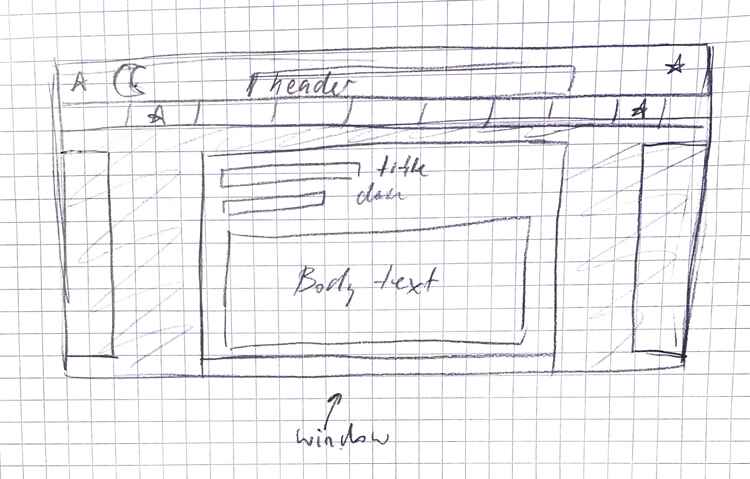 A
header
title
Body text
window